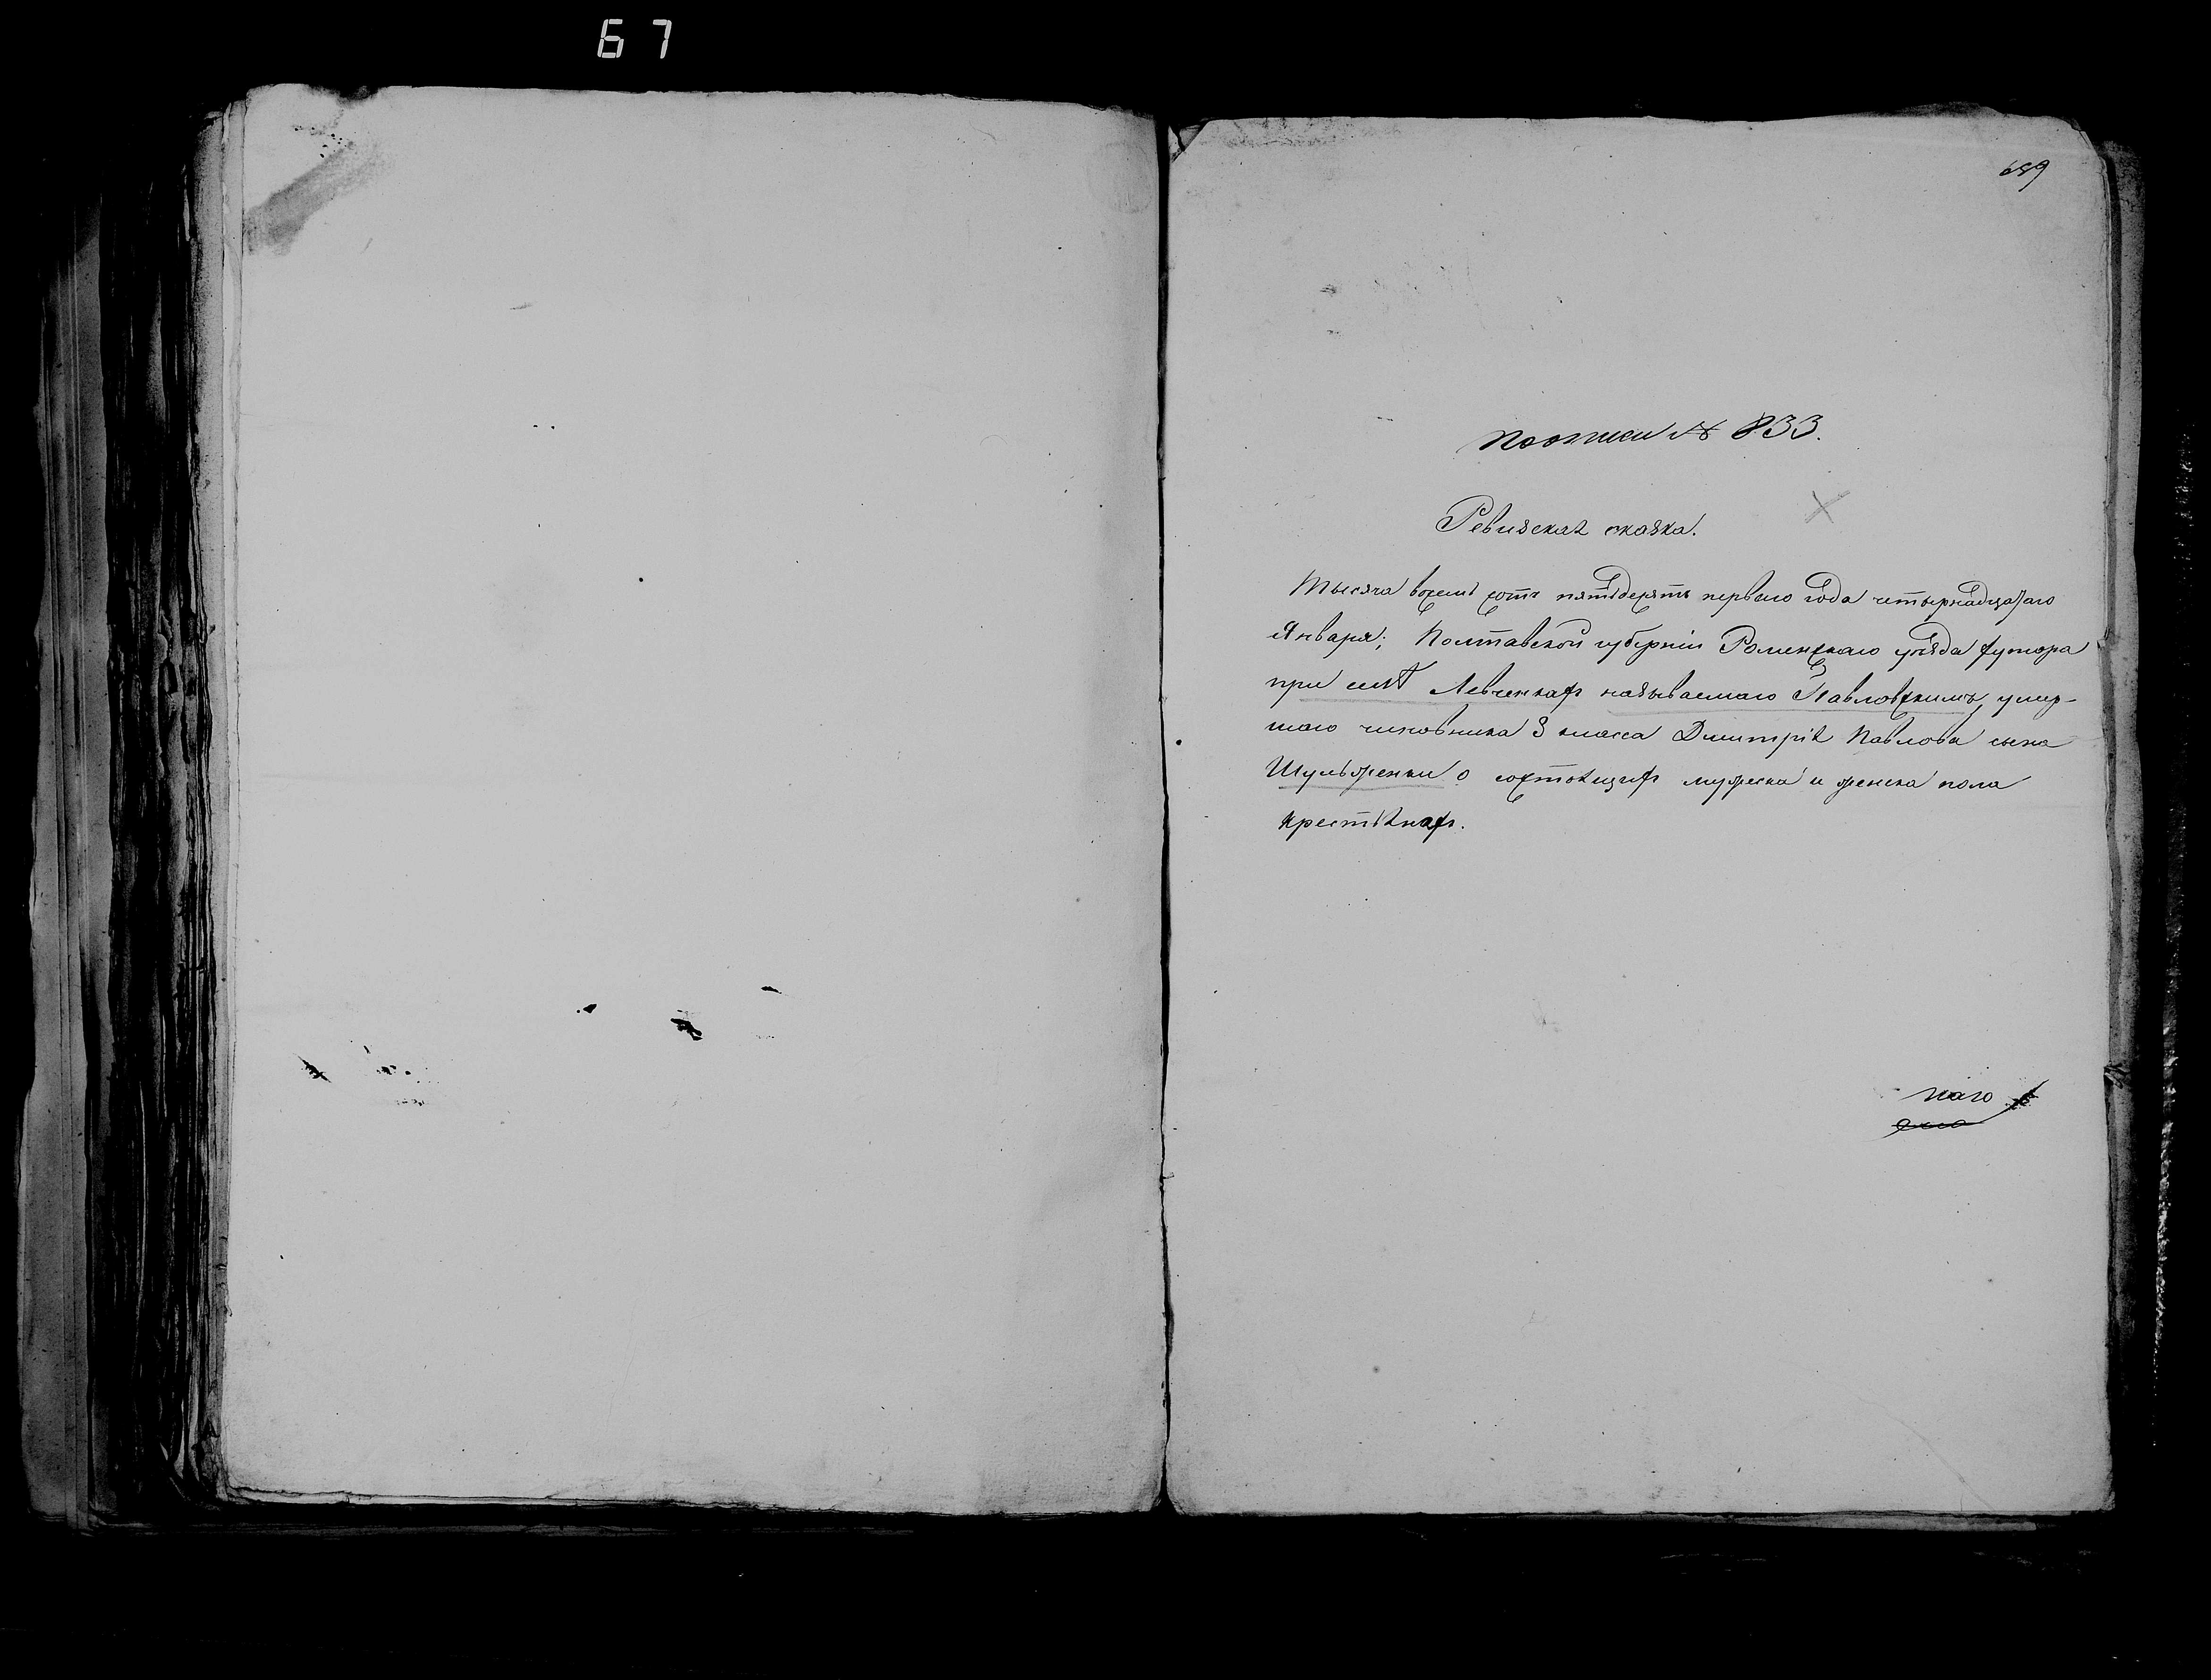 67
689
По описи № 833.
Ревизская сказка.
Тысяча восемь сотъ пятьдесятъ перваго года четырнадцатаго
Января; Полтавской губерніи Роменскаго уѣзда хутора
при селѣ Левченкахъ называемаго Павловскимъ, умер-
шаго чиновника 8 класса Дмитрія Павлова сына
Шульженки о состоящихъ мужеска и женска пола
крестьянахъ.